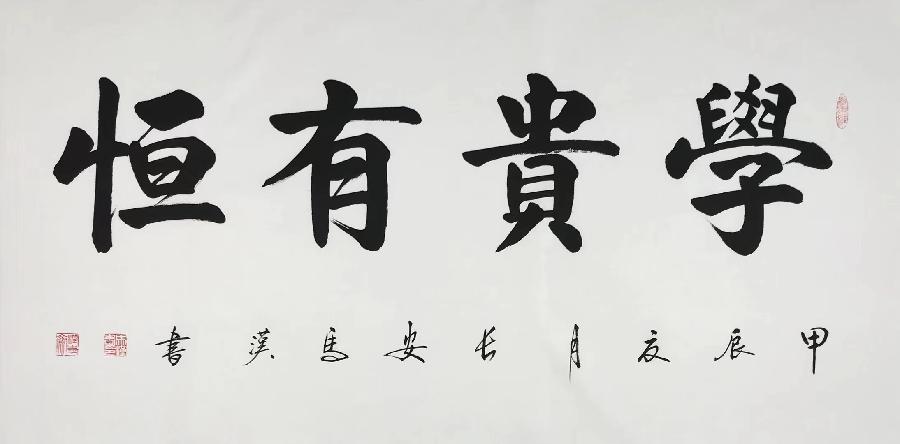 學貴有恒
甲辰夏月长安馬漢書